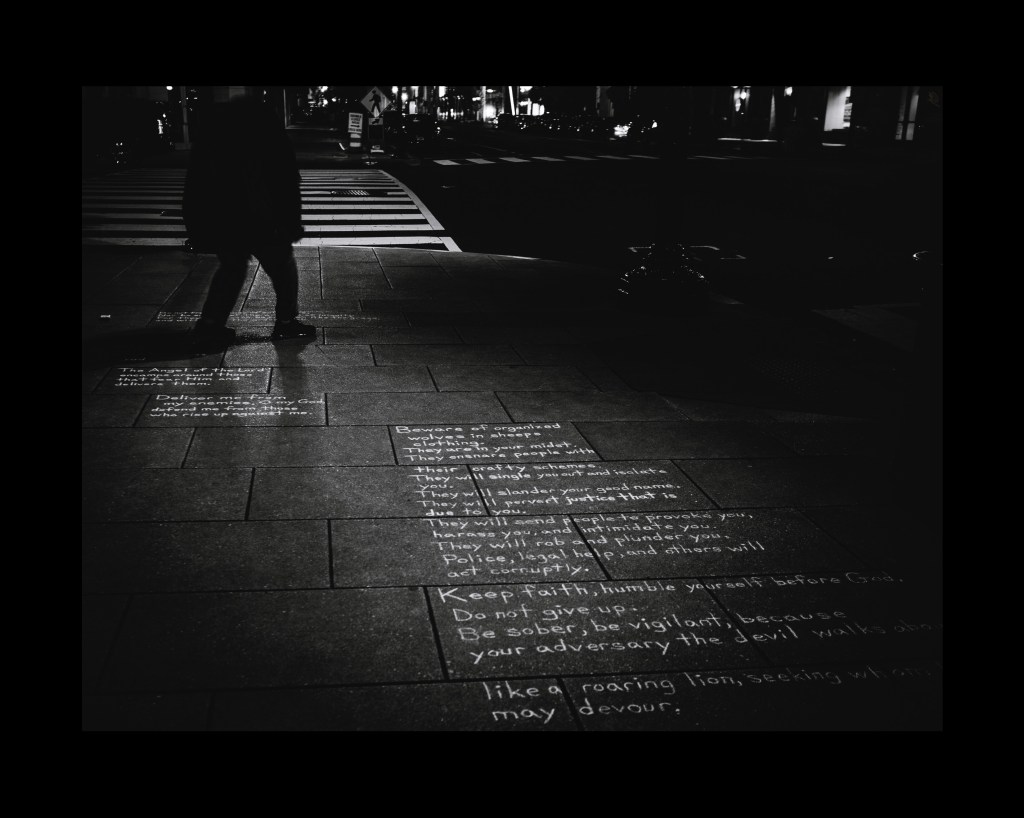 The Angel of the Lord
encamps around those
that fear Him and
delivers them.
Deliver me from
my enemies, O my God
defend me from those
who rise up against me.
Beware of organized
wolves in sheeps
clothing.
They are in your midst.
They ensnare people with
their crafty schemes.
They will single you out and isolate
you.
They will slander your good name.
They will pervert justice that is
due to you.
They will send people to provoke you,
harass you, and intimidate you.
They will rob and plunder you.
Police, legal help, and others will
act corruptly.
Keep faith, humble yourself before God.
Do not give up.
Be sober, be vigilant, because
your adversary the devil walks abo
like a roaring lion, seeking whom
may devour.